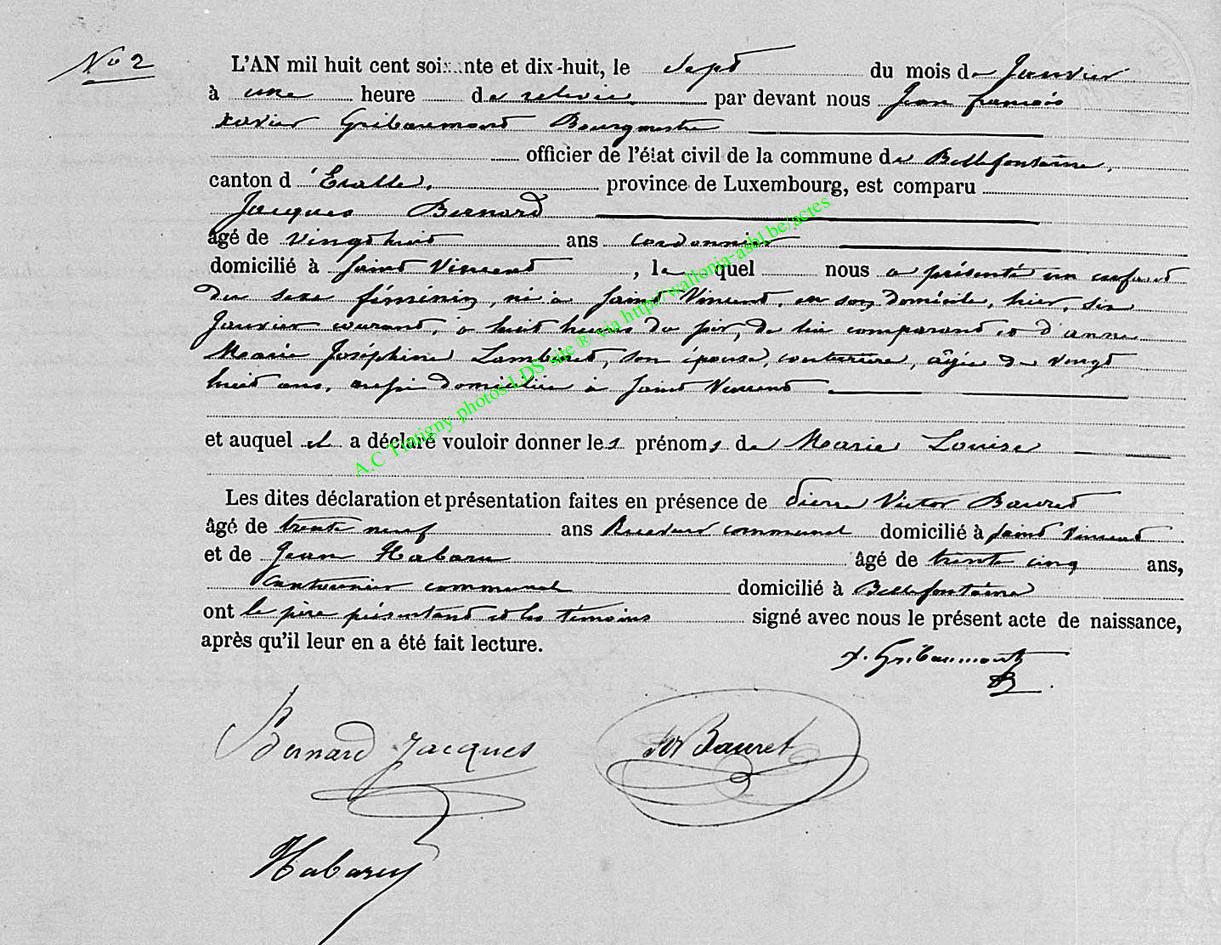 No 2
L'AN mil huit cent soixante et dix-huit, le sept du mois de Janvier
à une heure de relevée par devant nous Jean françois
xavier Gribaumont Bourgmestre
officier de l'état civil de la commune de Bellefontaine,
canton d'Etalle, province de Luxembourg, est comparu
Jacques Bernard
âgé de vingt huit ans cordonnier
domicilié à Saint Vincent, le quel nous a présenté un enfant
du sexe féminin, né à Saint Vincent, en son domicile, hier, six
Janvier courant, à huit heures du soir, de lui comparant et d'anne
Marie Joséphine Lambinet, son épouse, couturière, âgée de vingt
huit ans, aussi domiciliée à Saint Vincent
et auquel il a déclaré vouloir donner les prénoms de Marie Louise
Les dites déclaration et présentation faites en présence de Pierre Victor Bauret
âgé de trente neuf ans Receveur communal domicilié à Saint Vincent
et de Jean Habaru âgé de trente cinq ans,
Cantonnier communal domicilié à Bellefontaine
ont le père présentant et les témoins signé avec nous le présent acte de naissance,
après qu'il leur en a été fait lecture.
x. Gribaumont
Bernard Jacques
Bauret
Habaru
A.C Tintigny photos LDS site ® via http://wallonia-asbl.be/actes